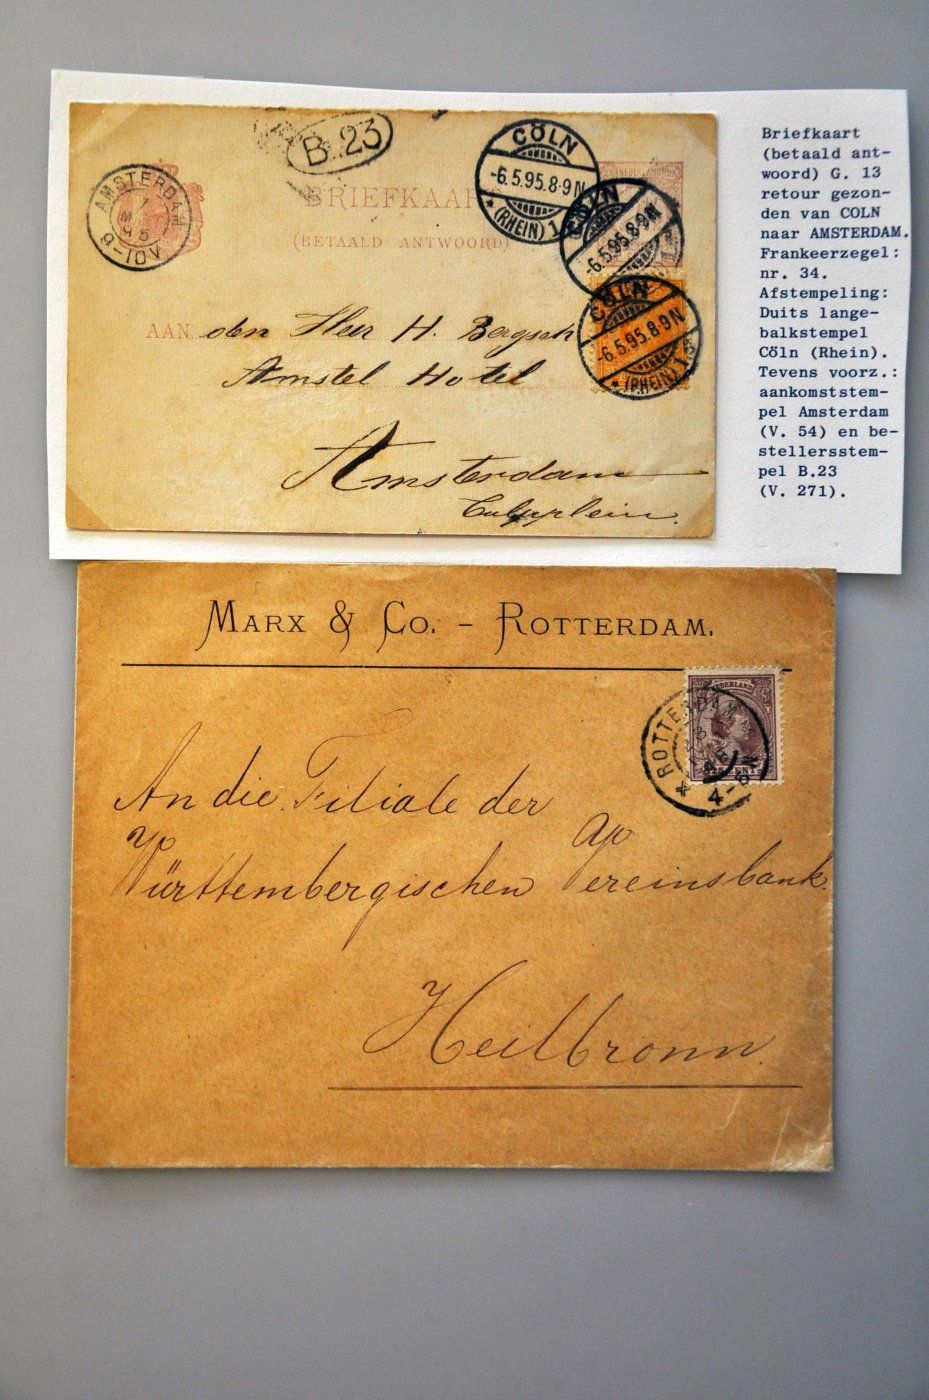 B..23
CÖLN
-6.5.95.8-9N
* (RHEIN) 1
AMSTERDAM
7
MRT
95
8-10V
BRIEFKAART
(BETAALD ANTWOORD)
CÖLN
-6.5.95.8-9N
CÖLN
-6.5.95.8-9N
* (RHEIN) 1
AAN den Heer H.
Amstel Hotel
Amsterdam
Briefkaart
(betaald ant-
woord) G. 13
retour gezon-
den van COLN
naar AMSTERDAM.
Frankeerzegel:
nr. 34.
Afstempeling:
Duits lange-
balkstempel
Cöln (Rhein).
Tevens voorz.:
aankomststem-
pel Amsterdam
(V. 54) en be-
stellersstem-
pel B.23
(V. 271).
MARX & CO. - ROTTERDAM.
NEDERLAND
ROTTERDAM
CENT
An die Filiale der
Württembergischen Vereinsbank.
Heilbronn.